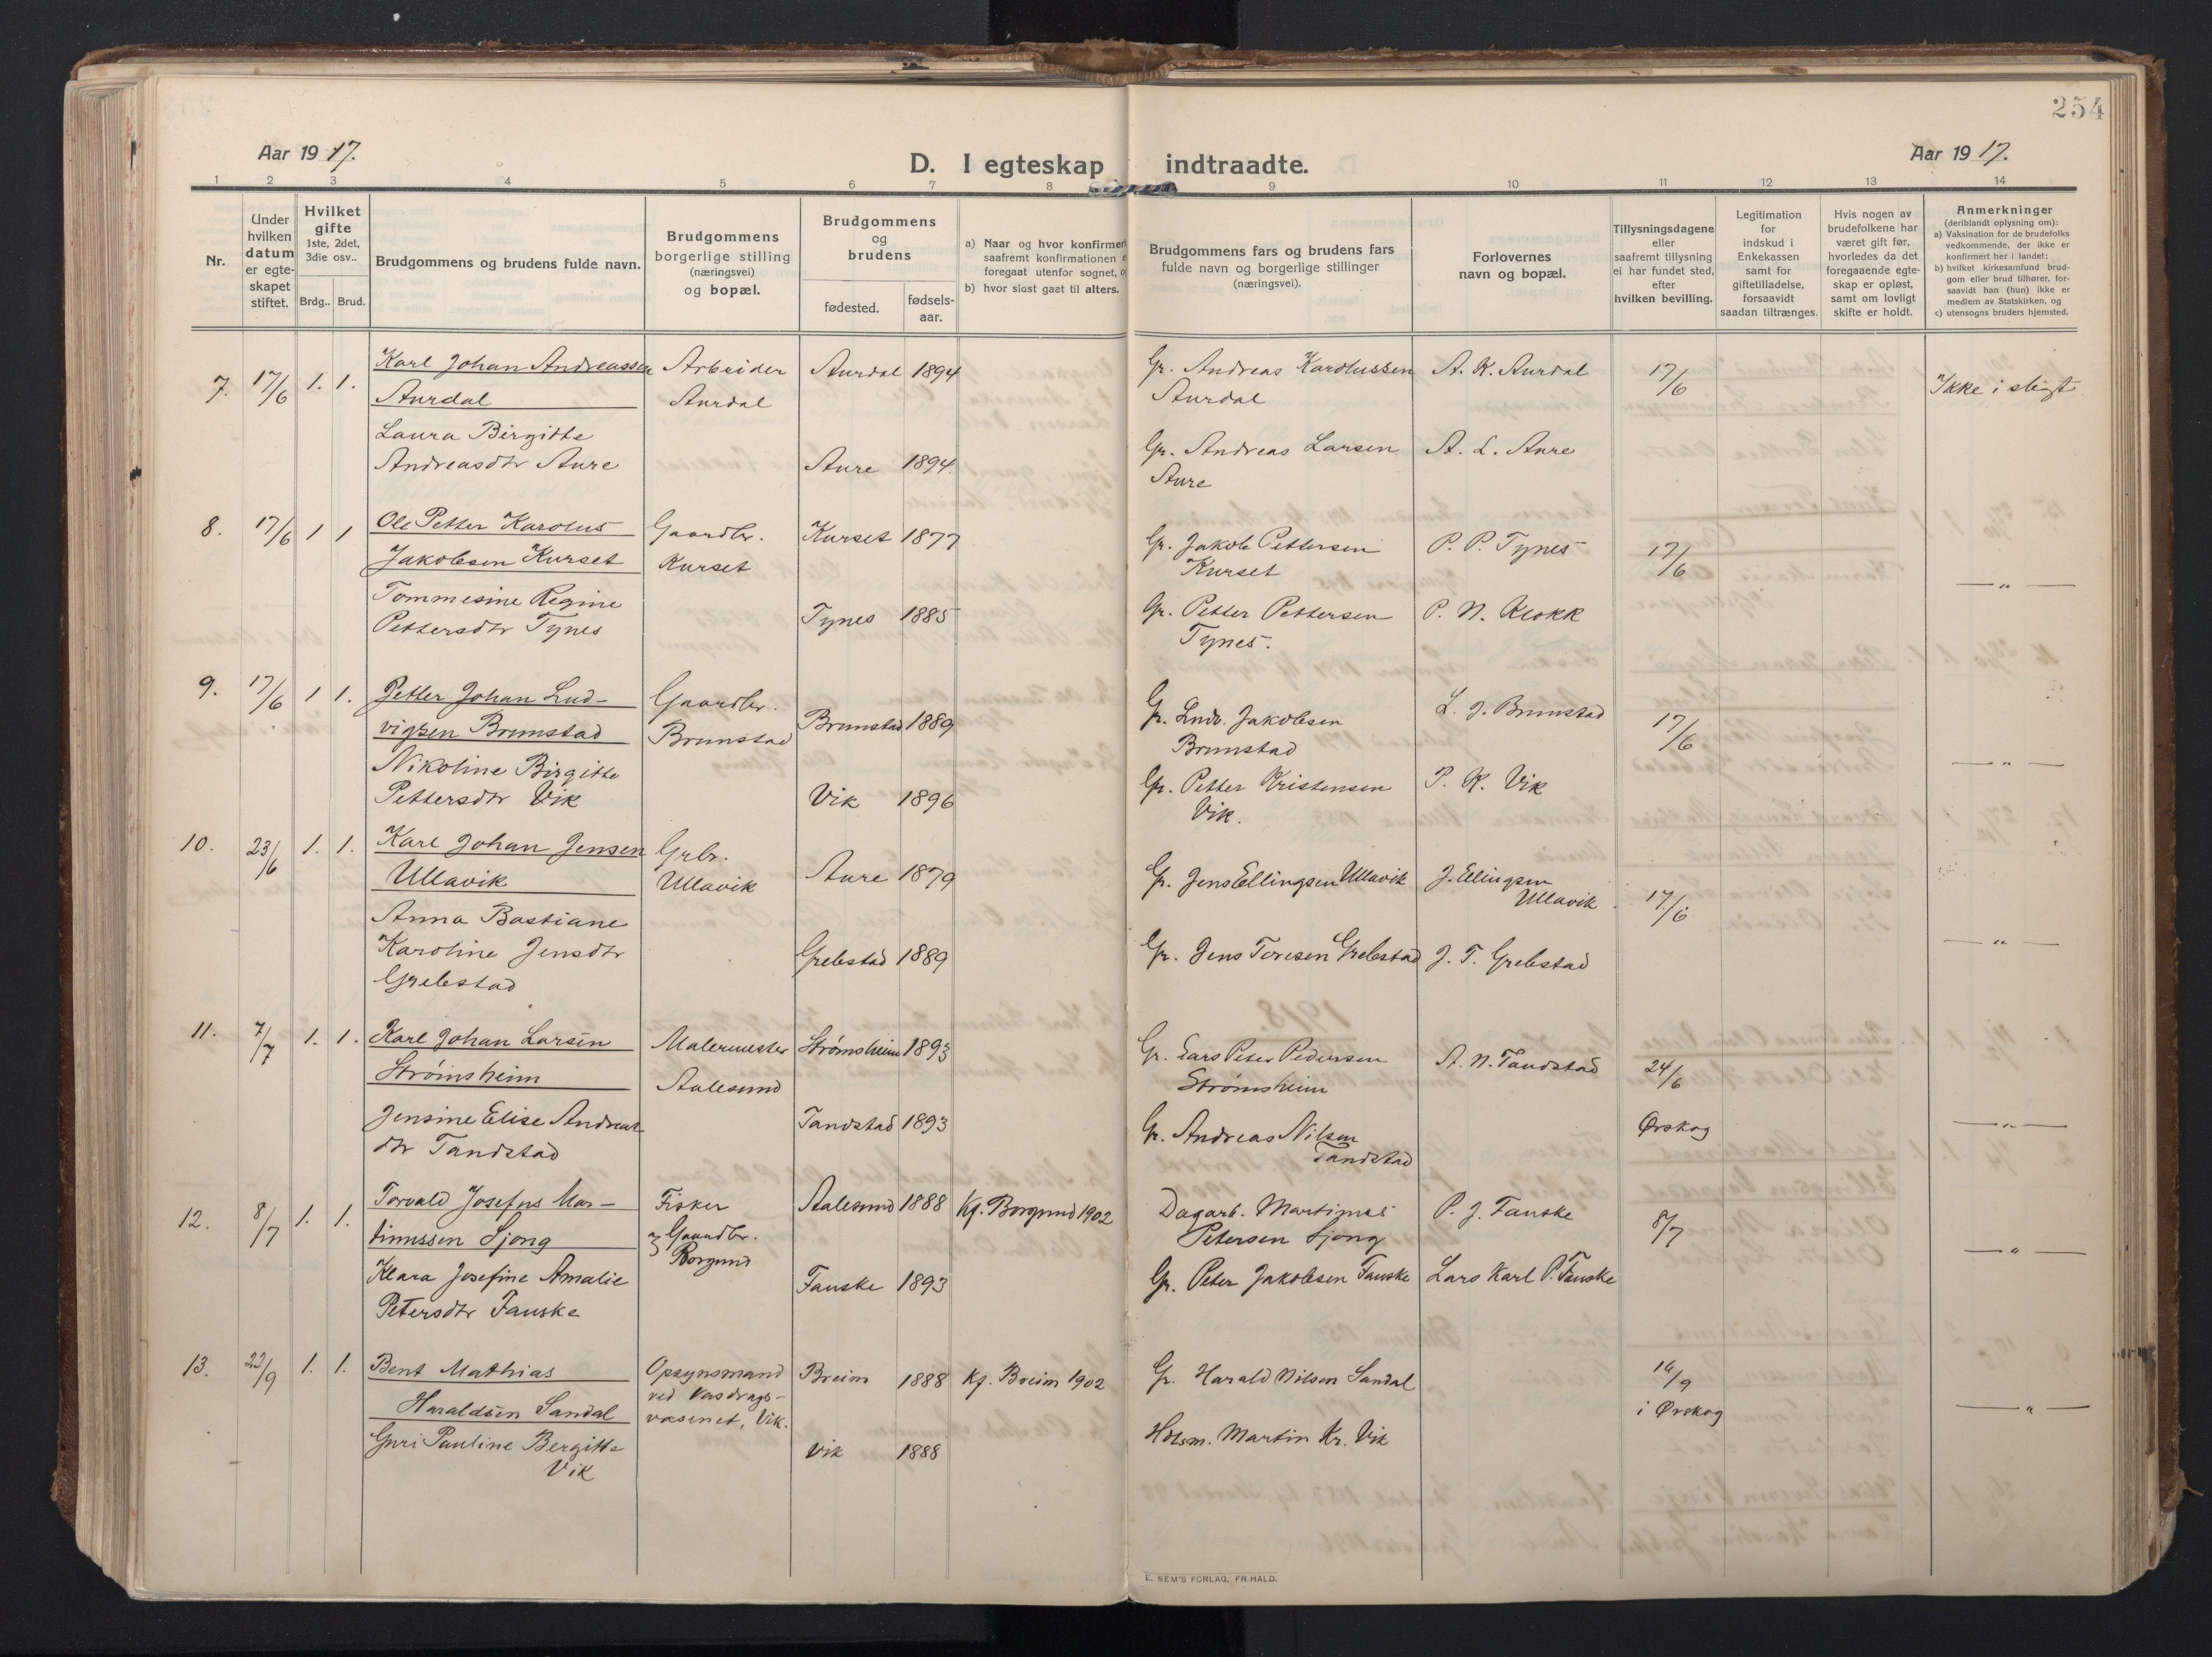 254
Aar 1917.
D. I egteskap indtraadte.
Aar 1917.
1 2 3 4 5 6 7 8 9 10 11 12 13 14
Nr.
Under
hvilken
datum
er egte-
skapet
stiftet.
Hvilket
gifte
1ste, 2det,
3die osv..
Brdg.. Brud.
Brudgommens og brudens fulde navn.
Brudgommens
borgerlige stilling
(næringsvei)
og bopæl.
Brudgommens
og
brudens
fødested.
fødsels-
aar.
a) Naar og hvor konfirmert
saafremt konfirmationen
foregaat utenfor sognet,
b) hvor sidst gaat til alters.
Brudgommens fars og brudens fars
fulde navn og borgerlige stillinger
(næringsvei).
Forlovernes
navn og bopæl.
Tillysningsdagene
eller
saafremt tillysning
ei har fundet sted,
efter
hvilken bevilling.
Legitimation
for
indskud i
Enkekassen
samt for
giftetilladelse,
forsaavidt
saadan tiltrænges.
Hvis nogen av
brudefolkene har
været gift før,
hvorledes da det
foregaaende egte-
skap er opløst,
samt om lovligt
skifte er holdt.
Anmerkninger
(deriblandt oplysning om):
a) Vaksination for de brudefolks
vedkommende, der ikke er
konfirmert her i landet;
b) hvilket kirkesamfund brud-
gom eller brud tilhører, for-
saavidt han (hun) ikke er
medlem av Statskirken, og
c) utensogns bruders hjemsted.
7. 17/6 1. 1. Karl Johan Andreassen Arbeider Aurdal 1894 Gr. Andreas Karolussen A. K. Aurdal 17/6 Ikke i slegt
Aurdal Aurdal Aurdal
Laura Birgitte Gr. Andreas Larsen A. L. Aure
Andreasdtr Aure Aure 1894. Aure
8. 17/6 1 1 Ole Petter Karolus Gaardbr. Kurset 1877 Gr. Jakob Pettersen P. P. Tynes 17/6
Jakobsen Kurset Kurset Kurset — " —
Tommesine Regine Tynes 1885 Gr. Petter Pettersen P. N. Klokk
Pettersdtr Tynes Tynes.
9. 17/6 1 1. Petter Johan Lud- Gaardbr. Brunstad 1889 Gr. Ludv. Jakobsen L. J. Brunstad 17/6
vigsen Brunstad Brunstad Brunstad — " —
Nikoline Birgitte Gr. Petter Kristensen P. K. Vik
Pettersdtr Vik Vik 1896 Vik.
10. 23/6 1. 1. Karl Johan Jensen Grbr. Aure 1879 Gr. Jens Ellingsen Ullavik J. Ellingsen
Ullavik Ullavik Ullavik 17/6
Anna Bastiane
Karoline Jensdtr Grebstad 1889 Gr. Jens Toresen Grebstad J. T. Grebstad — " —
Grebstad
11. 7/7 1. 1. Karl Johan Larsen Malermester Strømsheim 1893 Gr. Lars Peter Pedersen A. N. Tandstad 24/6
Strømsheim Aalesund Strømsheim
Jensine Elise Andreas Tandstad 1893 Gr. Andreas Nilsen Ørskog — " —
dtr Tandstad Tandstad
12. 8/7 1. 1. Torvald Josefus Mar- Fisker Aalesund 1888 Kf. Borgund 1902 Dagarb. Martinus P. J. Fauske 8/7
tinussen Sjong Gaardbr. Petersen Sjong
Borgund — " —
Klara Josefine Amalie Fauske 1893 Gr. Peter Jakobsen Fauske Lars Karl P. Fauske
Petersdtr Fauske
13. 22/9 1. 1. Bent Mathias Opsynsmand Breim 1888 Kf. Breim 1902 Gr. Harald Nilsen Sandal 16/9
Haraldsen Sandal ved Vasdrags- i Ørskog — " —
væsenet, Vik.
Guri Pauline Bergitte Vik 1888 Hdsm. Martin Kr. Vik
Vik
E. SEM'S FORLAG, FR.HALD.